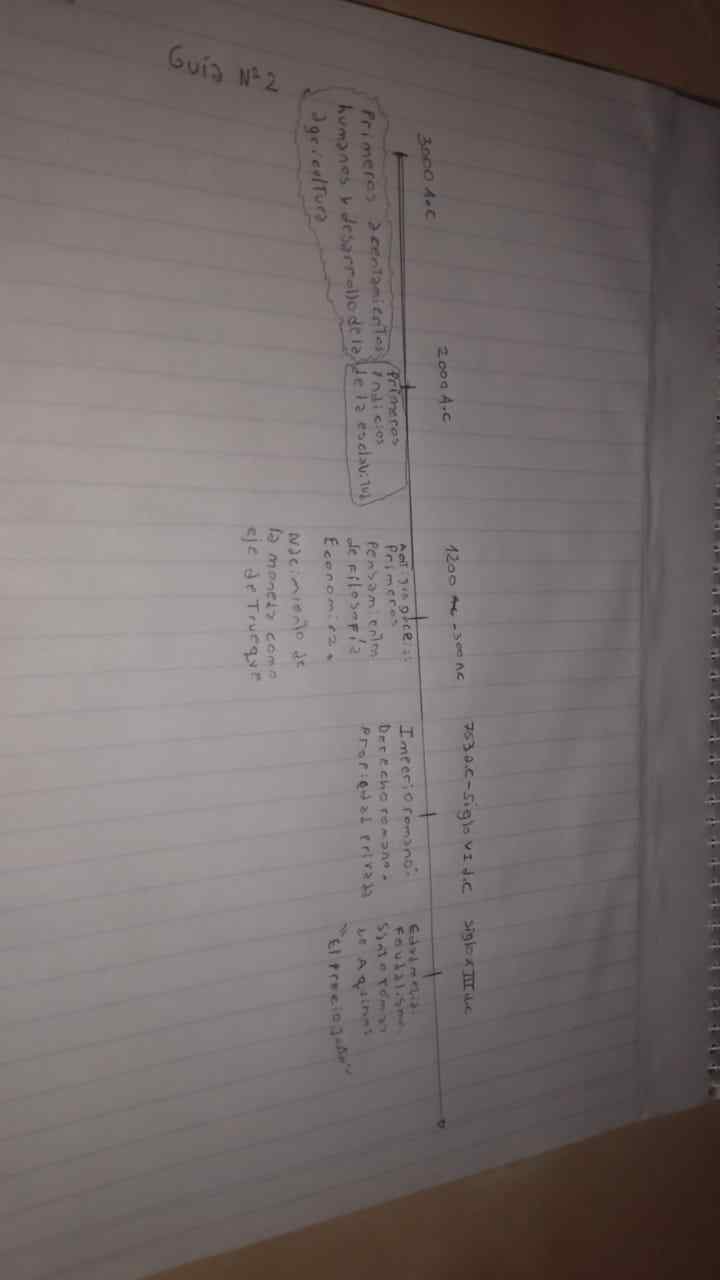 Guía Nº 2
3000 A.C
Primeros acentamientos
humanos y desarrollo de la
agricultura
2000 A.C
Primeros
indicios
de la esclavitud
1200 AC - 300 AC
Antigua Grecia:
Primeros
Pensamientos
de filosofía
Economica.
Nacimiento de
la moneda como
eje de Trueque
753 a.C - Siglo VI d.C
Imperio romano-
Derecho romano-
Propiedad privada
Siglo XIII d.C
Edad media.
Feudalismo.
Santo Tomas
de Aquino
"El Precio Justo"